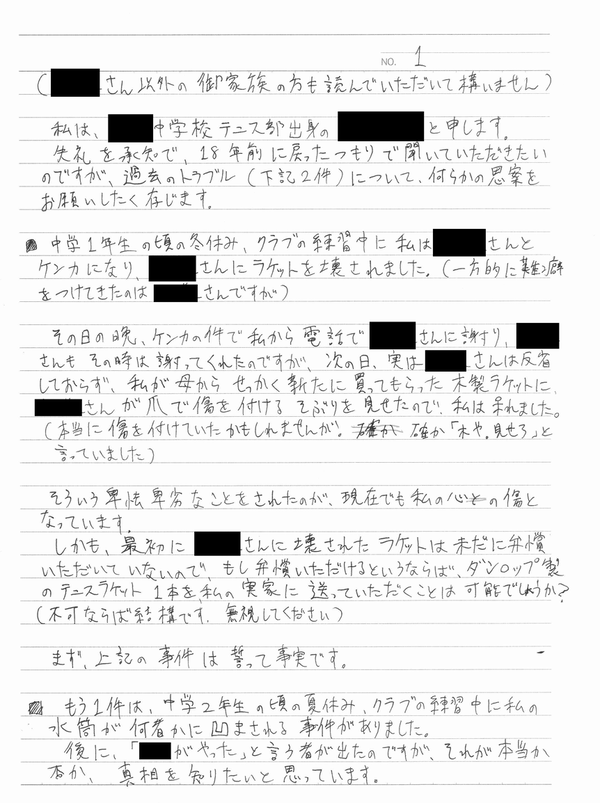 NO. 1
(さん以外の御家族の方も読んでいただいて構いません)
私は、中学校テニス部出身のと申します。
失礼を承知で、18年前に戻ったつもりで聞いていただきたい
のですが、過去のトラブル(下記2件)について、何らかの思案を
お願いしたく存じます。
中学1年生の頃の冬休み、クラブの練習中に私はさんと
ケンカになり、さんにラケットを壊されました。(一方的に難癖
をつけてきたのはさんですが)
その日の晩、ケンカの件で私から電話でさんに謝り、
さんもその時は謝ってくれたのですが、次の日、実はさんは反省
しておらず、私が母からせっかく新たに買ってもらった木製ラケットに、
さんが爪で傷を付けるそぶりを見せたので、私は呆れました。
(本当に傷を付けていたかもしれませんが。確か「木や。見せろ」と
言っていました)
そういう卑怯卑劣なことをされたのが、現在でも私の心の傷と
なっています。
しかも、最初にさんに壊されたラケットは未だに弁償
いただいていないので、もし弁償いただけるというならば、ダンロップ製
のテニスラケット1本を私の実家に送っていただくことは可能でしょうか?
(不可ならば結構です。無視してください)
まず、上記の事件は誓って事実です。
もう1件は、中学2年生の頃の夏休み、クラブの練習中に私の
水筒が何者かに凹まされる事件がありました。
後に、「がやった」と言う者が出たのですが、それが本当か
否か、真相を知りたいと思っています。